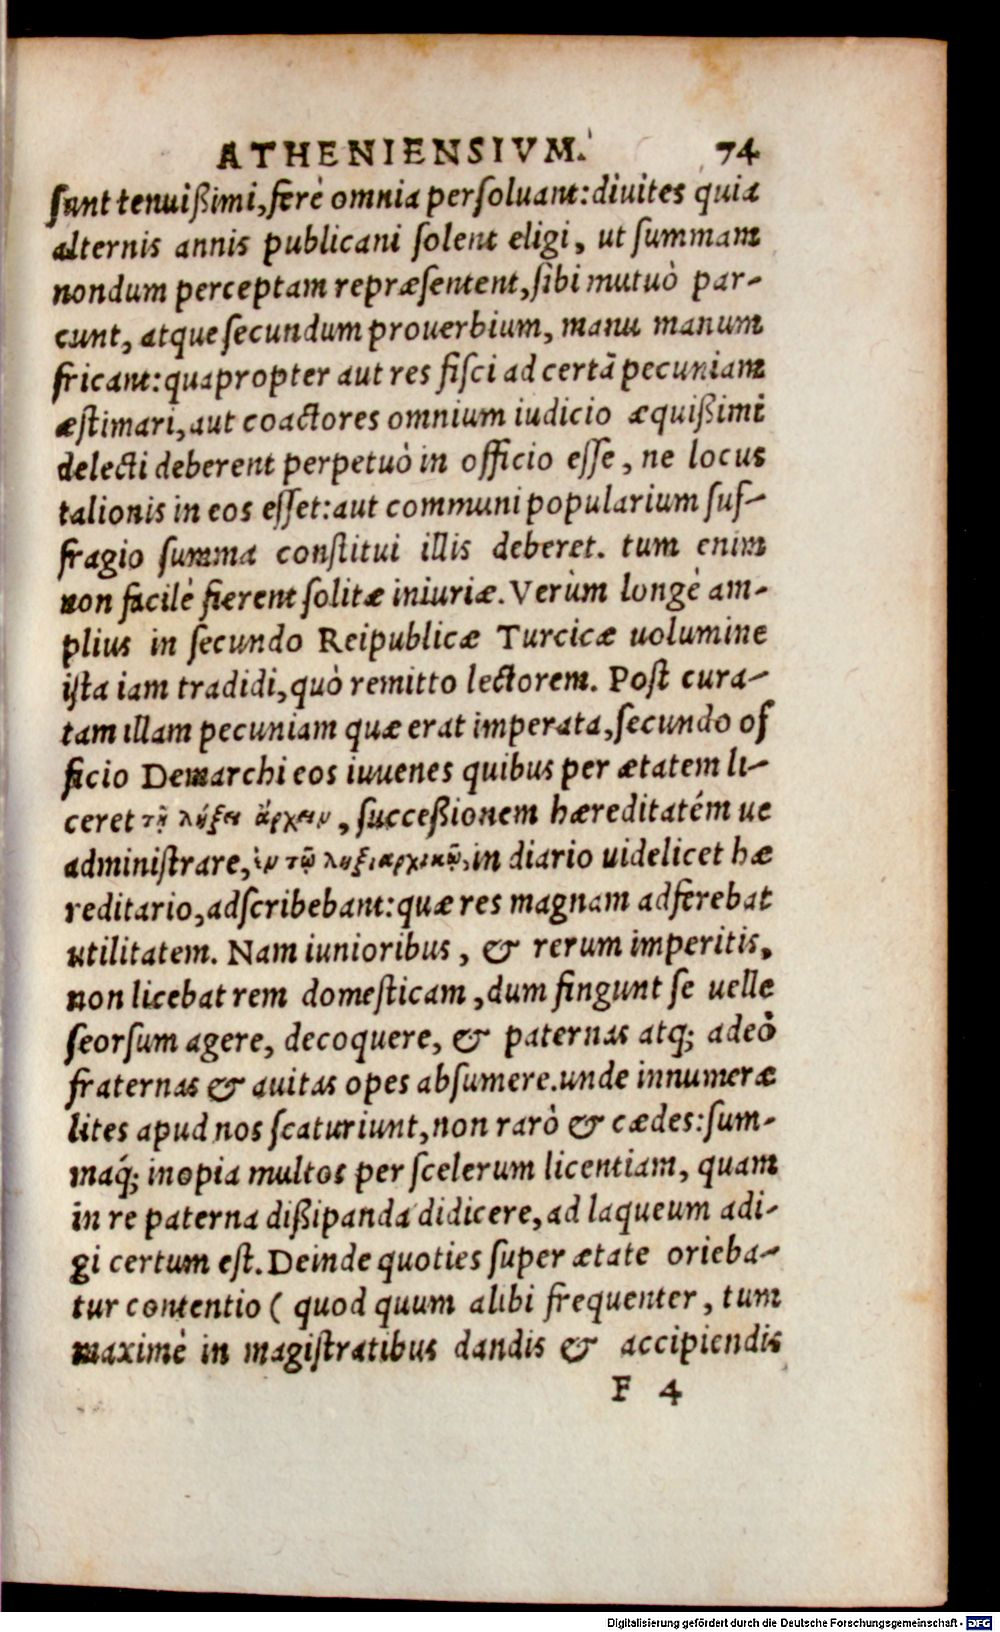 ATHENIENSIVM. 74
sunt tenuißimi, ferè omnia persoluant: diuites quia
alternis annis publicani solent eligi, ut summam
nondum perceptam repræsentent, sibi mutuò par-
cunt, atque secundum prouerbium, manu manum
fricant: quapropter aut res fisci ad certã pecuniam
æstimari, aut coactores omnium iudicio æquißimi
delecti deberent perpetuò in officio esse, ne locus
talionis in eos esset: aut communi popularium suf-
fragio summa constitui illis deberet. tum enim
non facilè fierent solitæ iniuriæ. Verùm longè am-
plius in secundo Reipublicæ Turcicæ uolumine
ista iam tradidi, quò remitto lectorem. Post cura-
tam illam pecuniam quæ erat imperata, secundo of
ficio Demarchi eos iuuenes quibus per ætatem li-
ceret τῇ λήξει ἄρχειν, succeßionem hæreditatém ue
administrare, ἐν τῷ ληξιαρχικῷ, in diario uidelicet hæ
reditario, adscribebant: quæ res magnam adferebat
utilitatem. Nam iunioribus, & rerum imperitis,
non licebat rem domesticam, dum fingunt se uelle
seorsum agere, decoquere, & paternas atq; adeò
fraternas & auitas opes absumere. unde innumeræ
lites apud nos scaturiunt, non rarò & cædes: sum-
maq́; inopia multos per scelerum licentiam, quam
in re paterna dißipanda didicere, ad laqueum adi-
gi certum est. Deinde quoties super ætate orieba-
tur contentio ( quod quum alibi frequenter, tum
maximè in magistratibus dandis & accipiendis
F 4
Digitalisierung gefördert durch die Deutsche Forschungsgemeinschaft - DFG